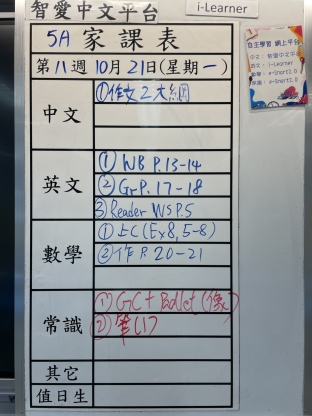 智愛中文平台
i-Learner
5A 家課表
第八週10月21日(星期一)
中文
①作文2大綱
英文
① WB P.13-14
② Gr P.17-18
③ Reader WS P.5
數學
① 上C(Ex8, 5-8)
② 作 P.20-21
常識
① GC +
② 筆(1)
其它
值日生
自主學習 網上平台
中文: 智愛中文平台
英文: i-Learner
數學: e-Smart2.0
常識: e-Smart2.0